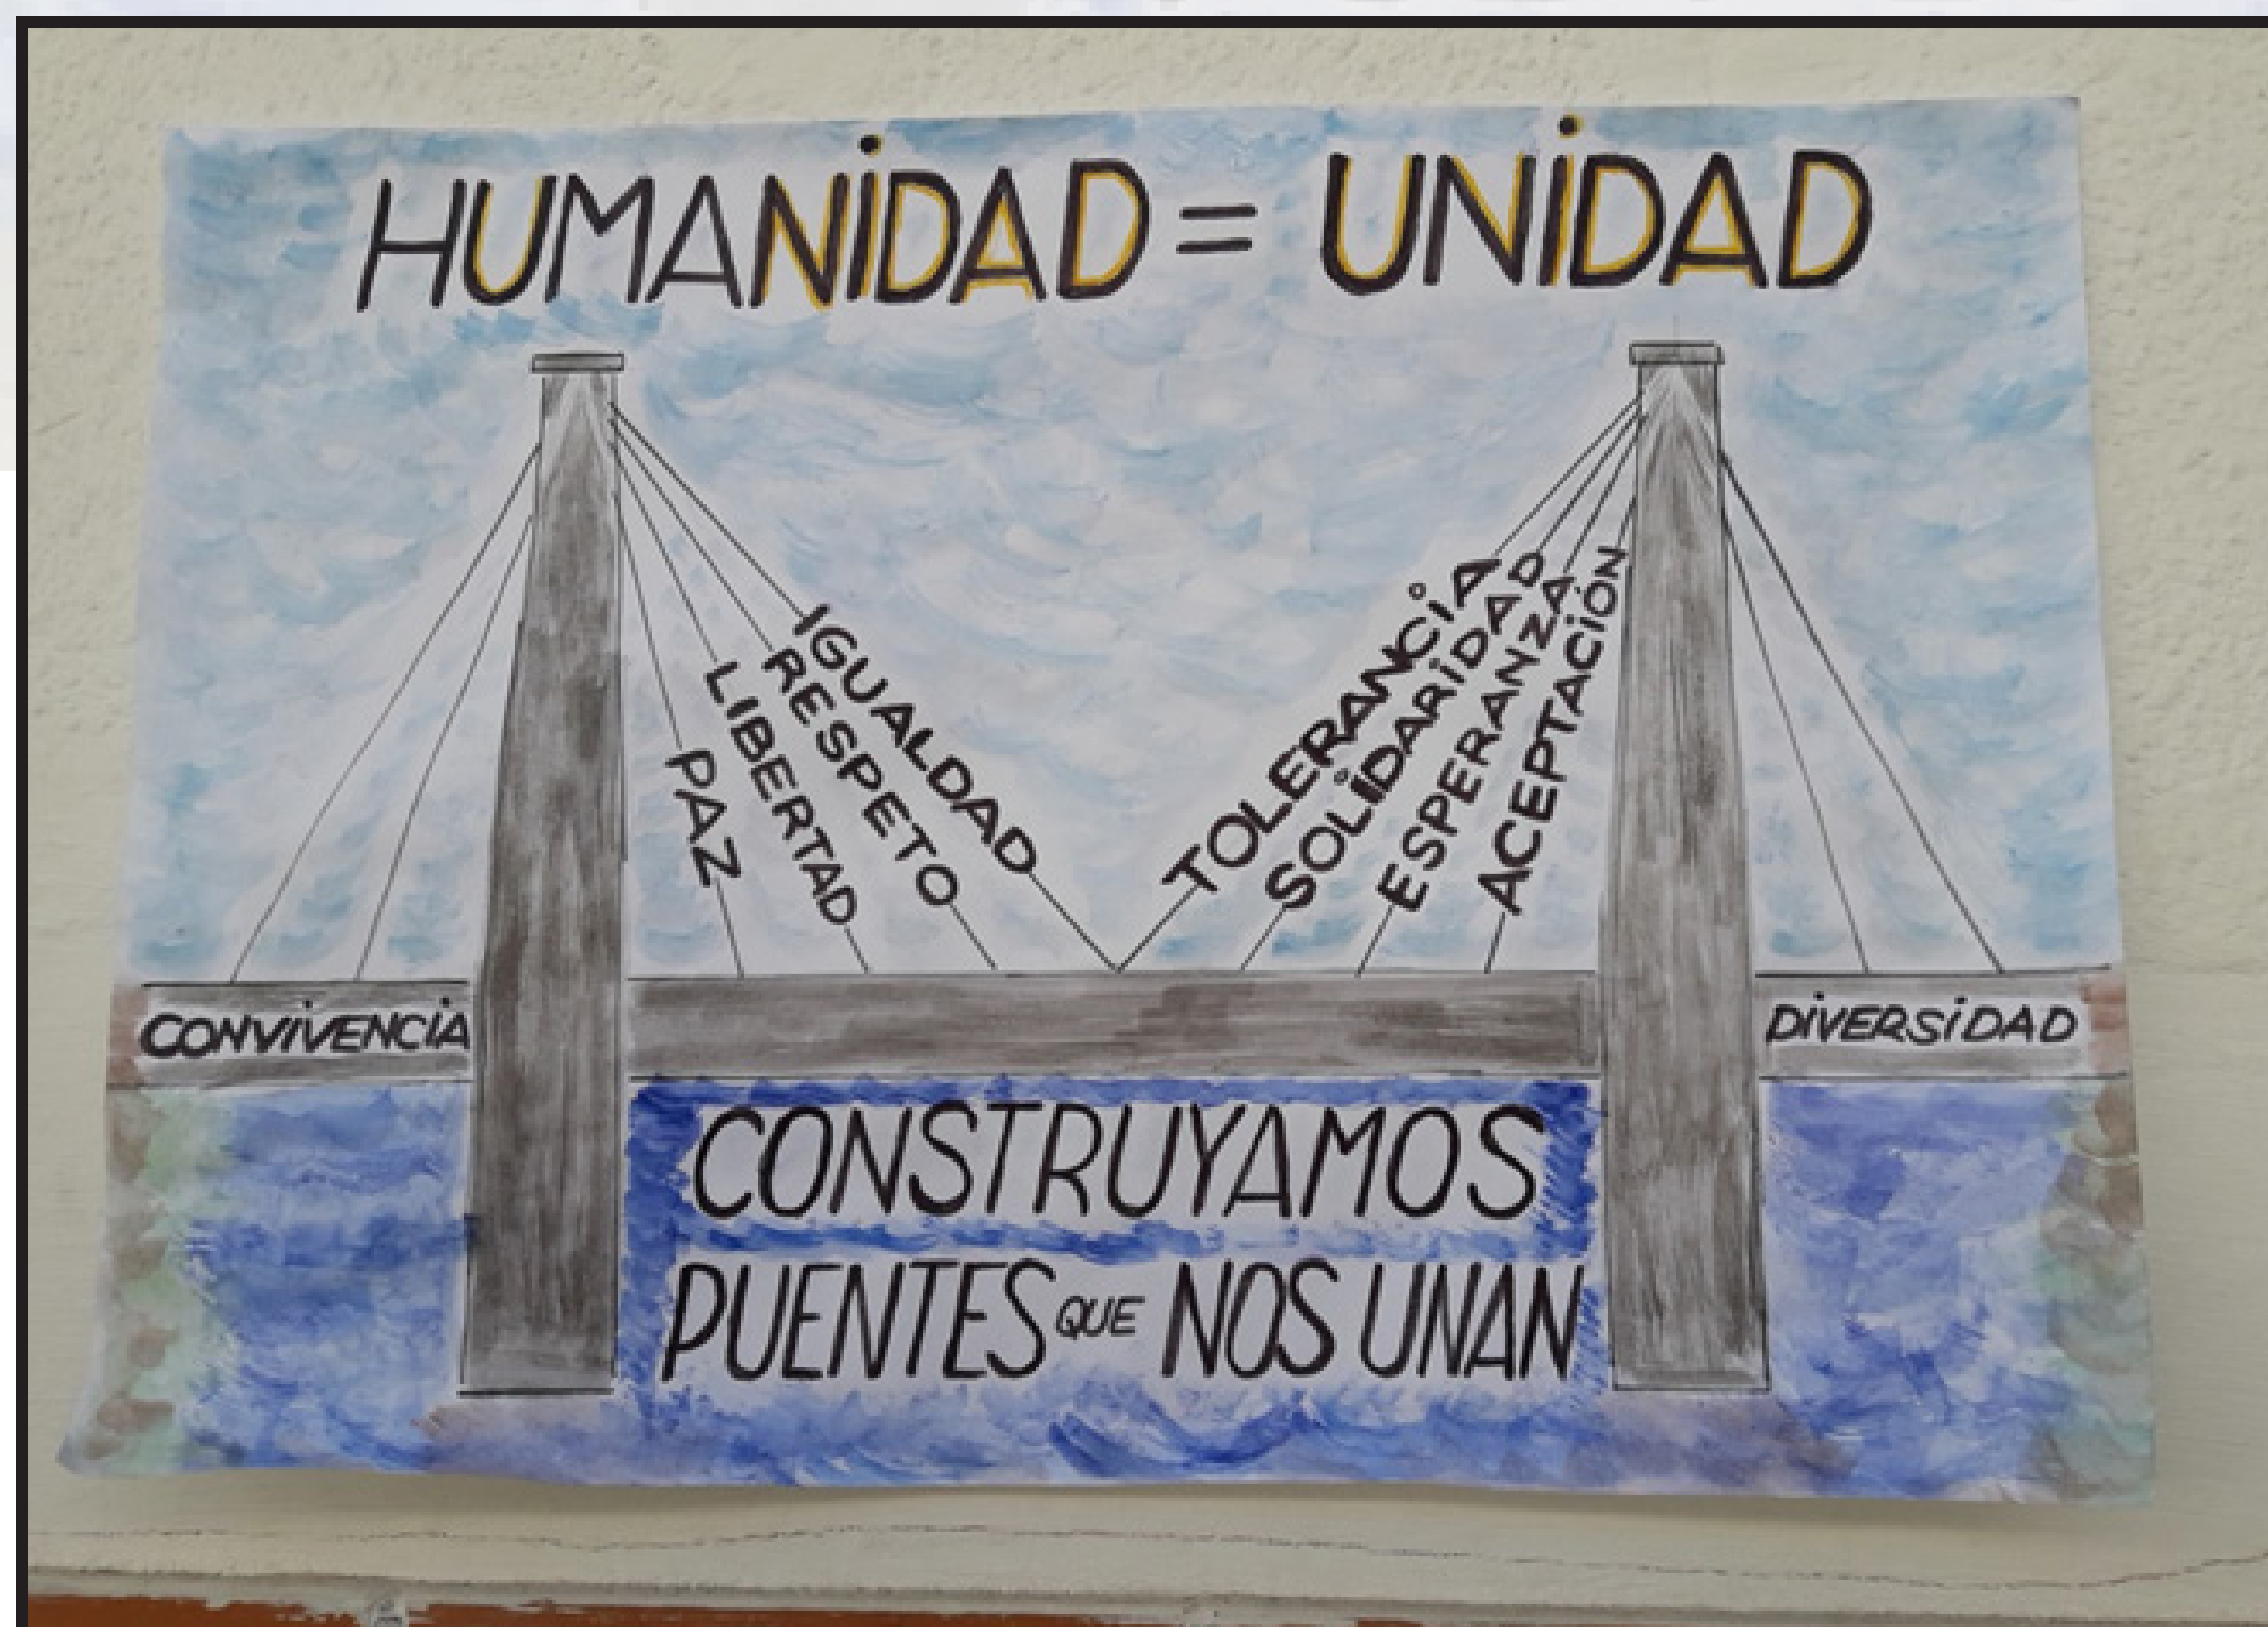 HUMANIDAD = UNIDAD
IGUALDAD
RESPETO
LIBERTAD
PAZ
TOLERANCIA
SOLIDARIDAD
ESPERANZA
ACEPTACIÓN
CONVIVENCIA
DIVERSIDAD
CONSTRUYAMOS
PUENTES QUE NOS UNAN